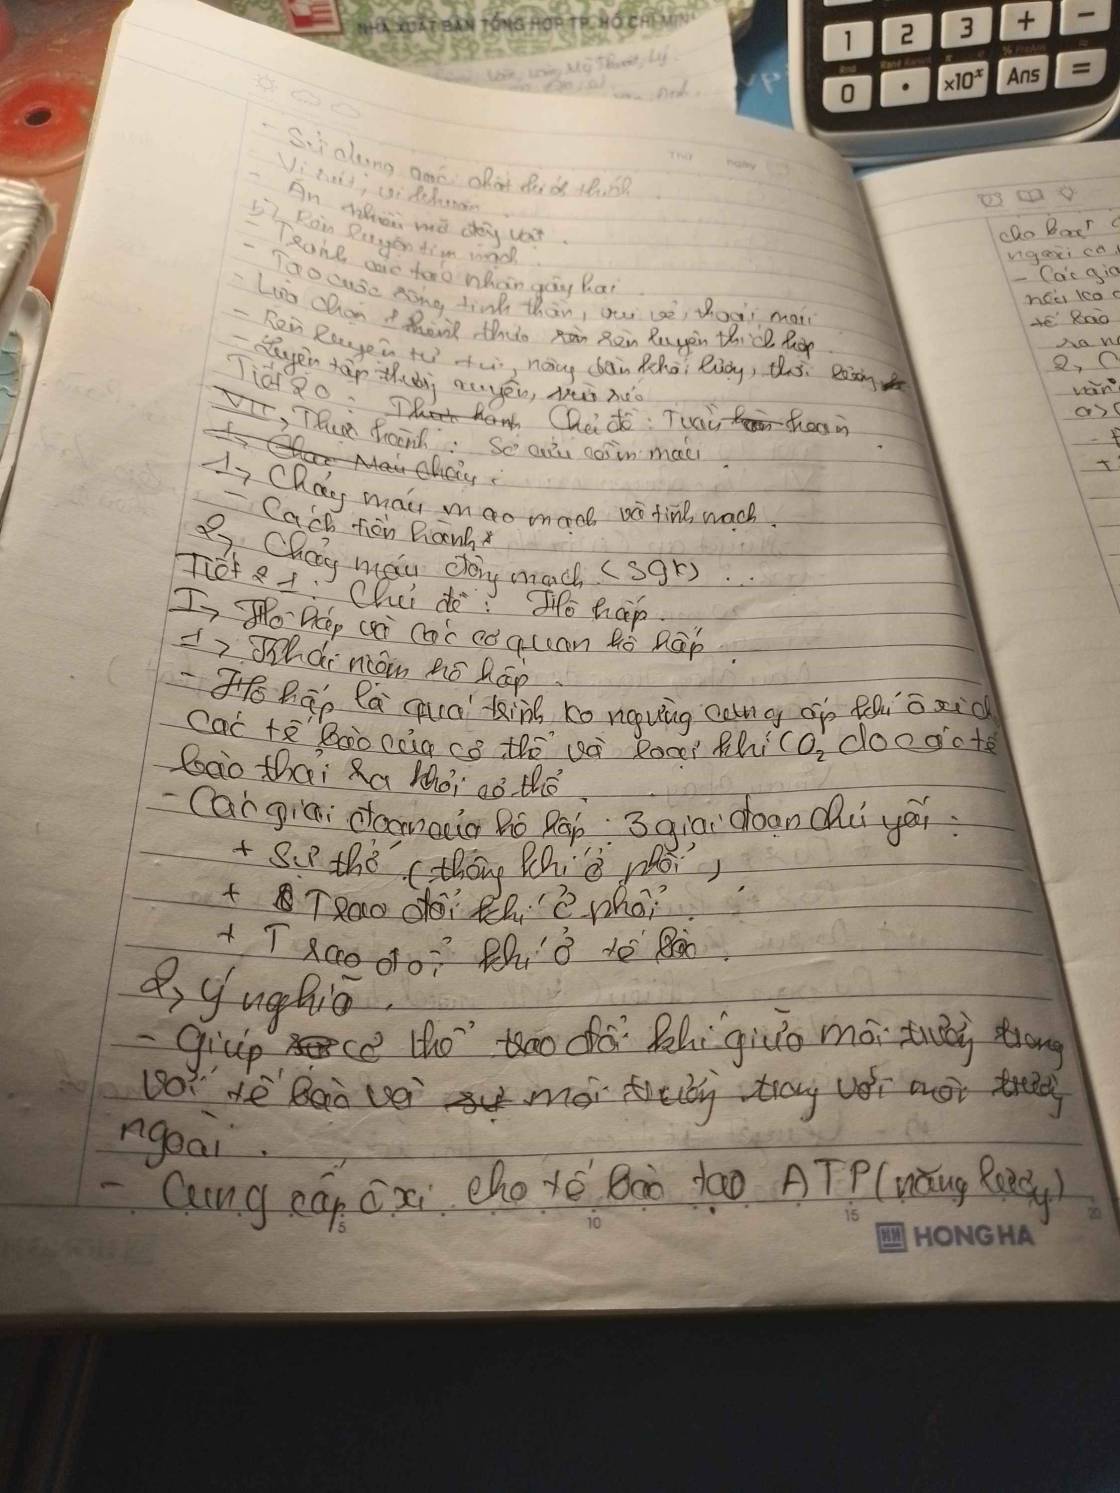 NHÀ XUẤT BẢN TỔNG HỢP TP. HỒ CHÍ MINH
1 2 3 + −
0 • ×10ˣ Ans =
Thứ Ngày
- Sử dụng các chất kích thích.
- Vi rút, vi khuẩn.
- Ăn nhiều mỡ động vật.
b, Rèn luyện tim mạch.
- Tránh các tác nhân gây hại.
- Tạo cuộc sống tinh thần, vui vẻ, thoải mái
- Lựa chọn hình thức rèn luyện thích hợp
- Rèn luyện từ từ, nâng dần khối lượng, thời
- Luyện tập thường xuyên, vừa sức
Tiết 20: Chủ đề: Tuần hoàn.
VII, Thực hành: Sơ cứu cầm máu.
1, Chảy máu mao mạch và tĩnh mạch.
- Cách tiến hành:
2, Chảy máu động mạch (sgk)...
Tiết 21: Chủ đề: Hô hấp.
I, Hô hấp và các cơ quan hô hấp.
1, Khái niệm hô hấp.
- Hô hấp là quá trình ko ngừng cung cấp khí ôxi cho
các tế bào của cơ thể và loại khí CO₂ do các tế
bào thải ra khỏi cơ thể.
- Các giai đoạn của hô hấp: 3 giai đoạn chủ yếu:
+ Sự thở (thông khí ở phổi)
+ Trao đổi khí ở phổi.
+ Trao đổi khí ở tế bào.
2, Ý nghĩa.
- Giúp cơ thể trao đổi khí giữa môi trường trong
với tế bào và môi trường trong với môi trường
ngoài.
- Cung cấp ôxi cho tế bào tạo ATP (năng lượng)
5 10 15 20
HONG HA
cho
người
- Các gia
nếu ko
tế bào
ra
2, C
a,